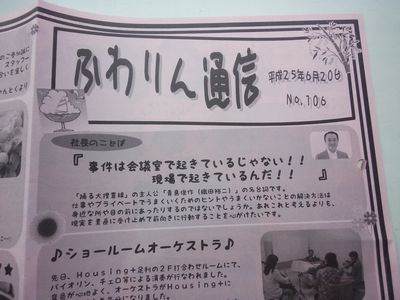 ふわりん通信
平成25年6月20日
No.106
社長のことば
『事件は会議室で起きているじゃない!!
現場で起きているんだ!!』
「踊る大捜査線」の主人公「青島俊作(織田裕二)」の名台詞です。
仕事やプライベートでうまくいくためのヒントやうまくいかないことの解決方法は
身近な所や目の前にあったりするのではないでしょうか。あれこれと考えるよりも、
現実を素直に受け止めて前向きに行動することを心がけたいです。
♪ショールームオーケストラ♪
先日、Housing+足利の2F打合わせルームにて、
バイオリン、チェロ等による演奏が行なわれました。
音色が心地よく、オーケストラがHousing+に